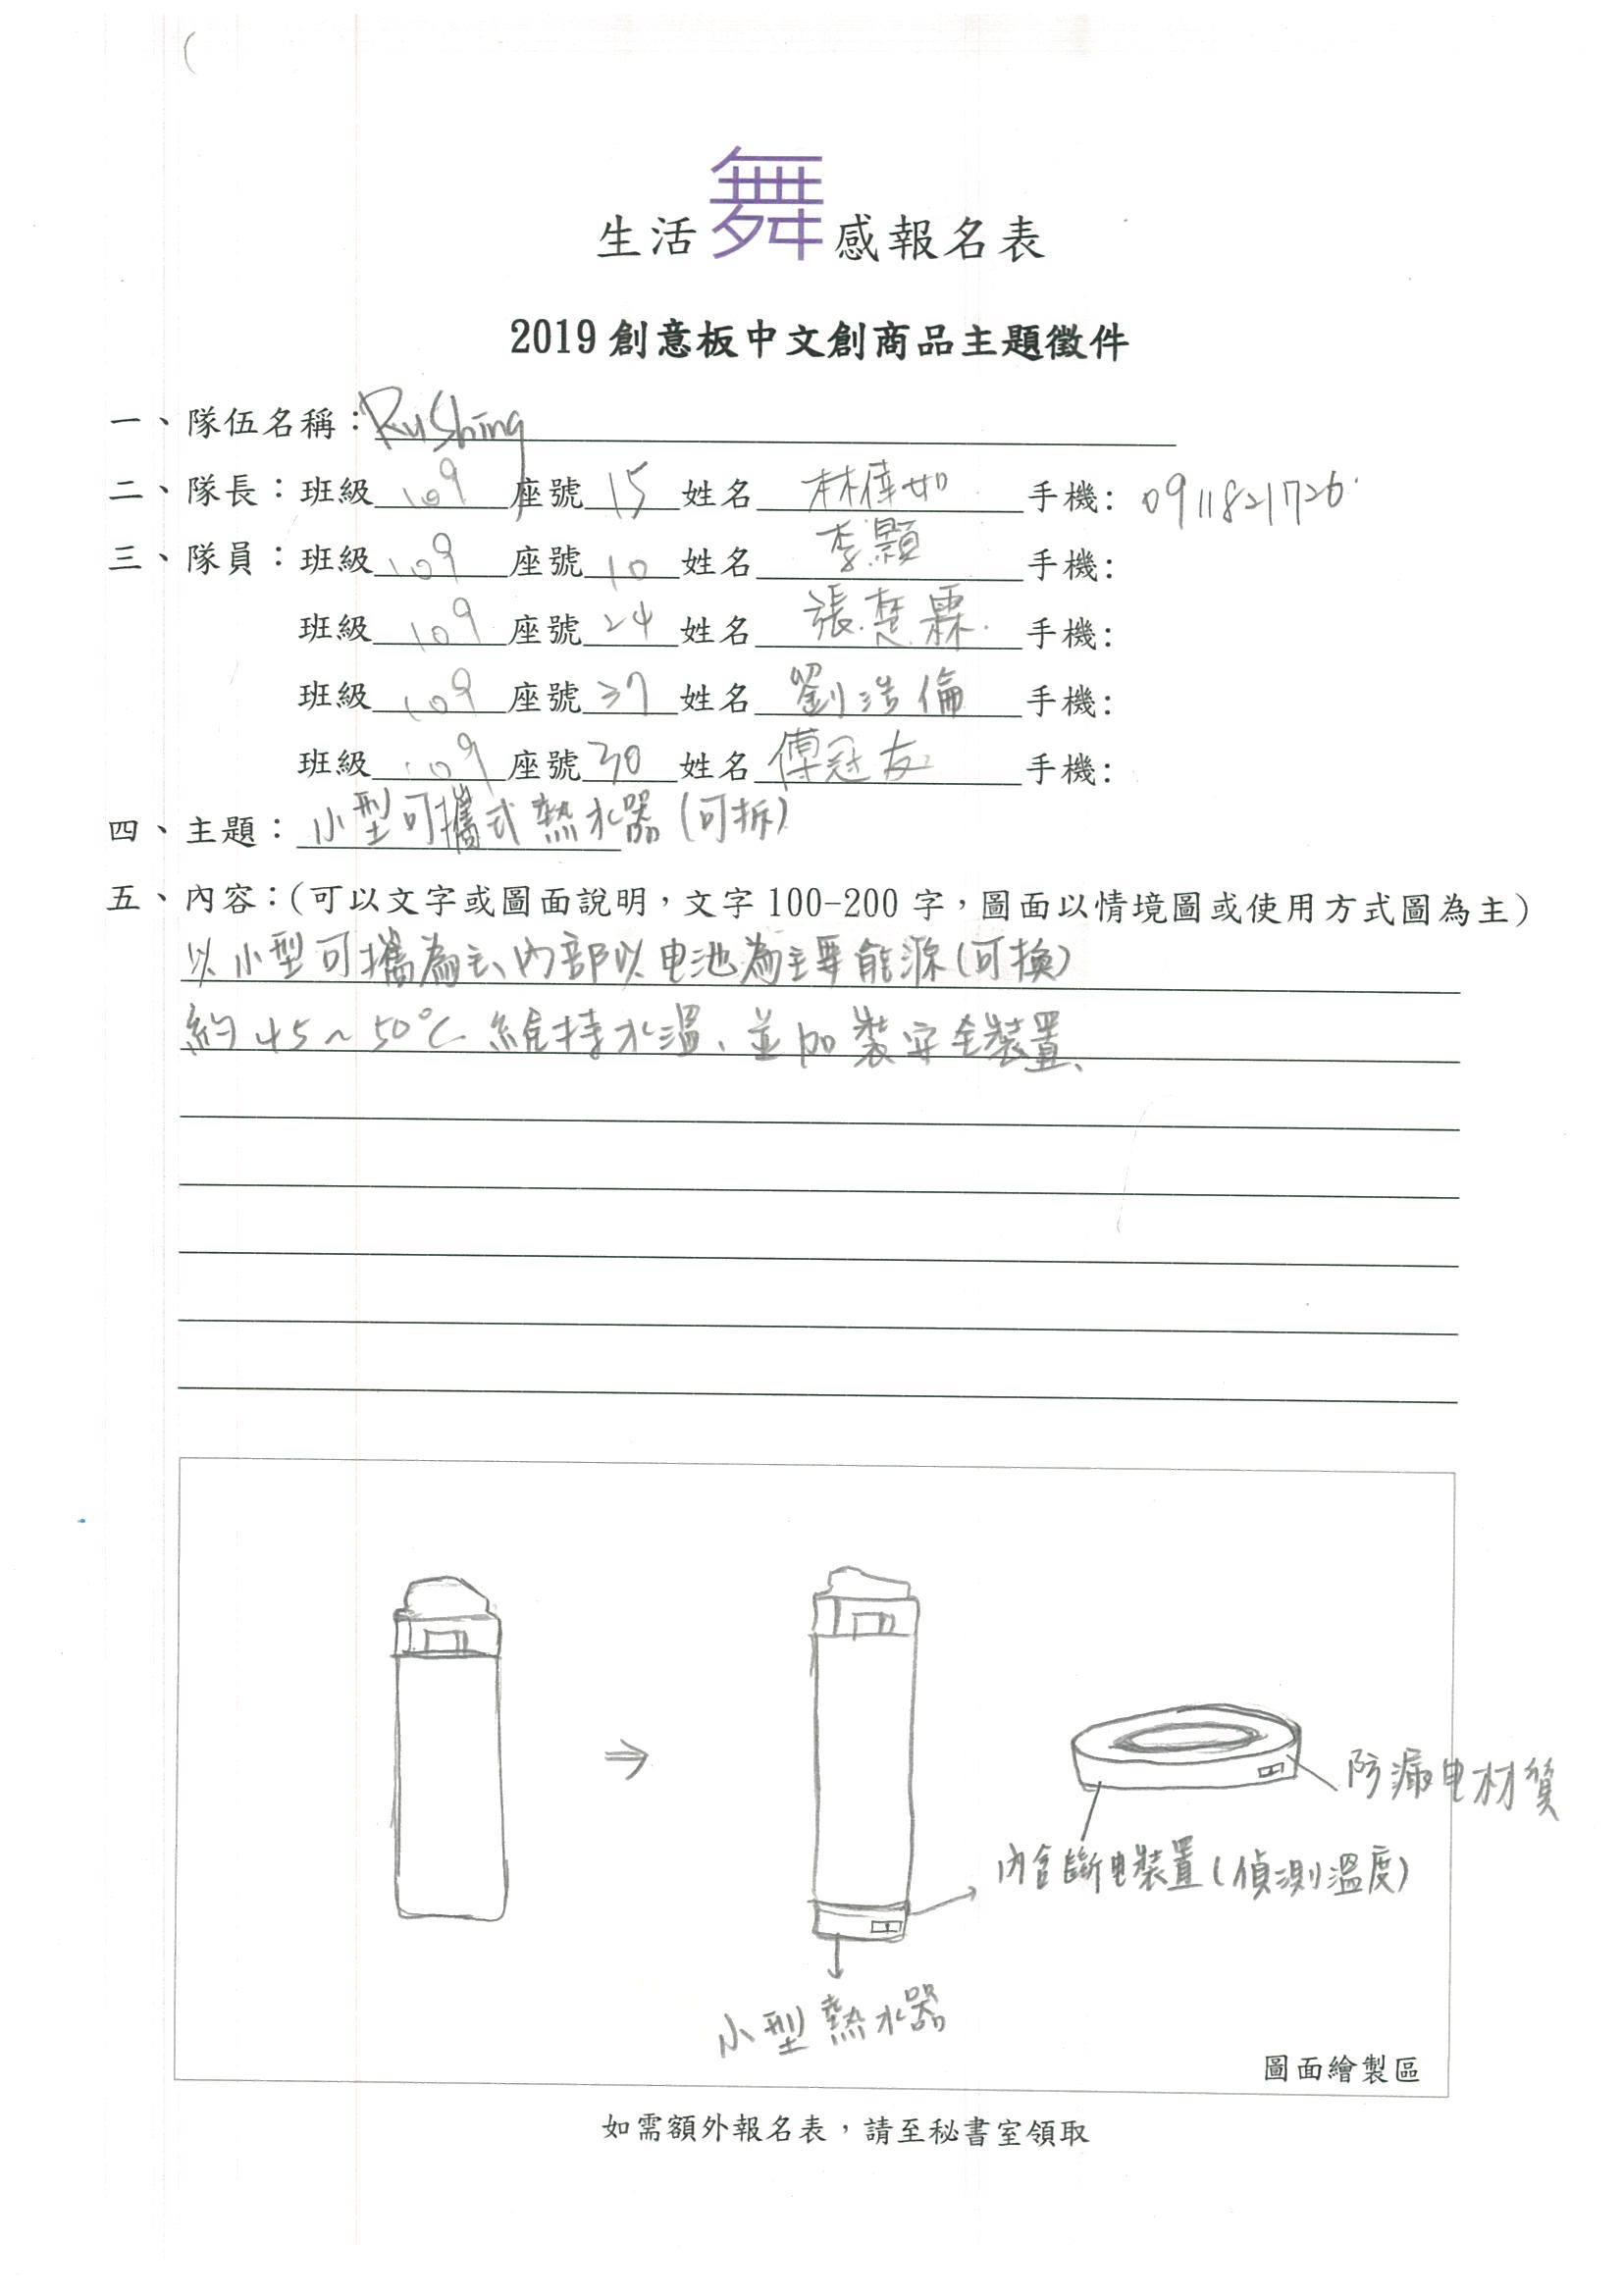 生活舞感報名表
2019創意板中文創商品主題徵件
一、隊伍名稱：RuShing
二、隊長：班級109座號15姓名林偉如手機：0911821726
三、隊員：班級109座號10姓名李顥手機：
班級109座號24姓名張楚霖手機：
班級109座號37姓名劉浩倫手機：
班級109座號30姓名傅冠友手機：
四、主題：小型可攜式熱水器(可拆)
五、內容：(可以文字或圖面說明，文字100-200字，圖面以情境圖或使用方式圖為主)
以小型可攜為主、內部以电池為主要能源(可換)
約45~50℃維持水溫、並加裝安全裝置、
防漏电材質
內含斷电裝置(偵測溫度)
小型熱水器
圖面繪製區
如需額外報名表，請至秘書室領取